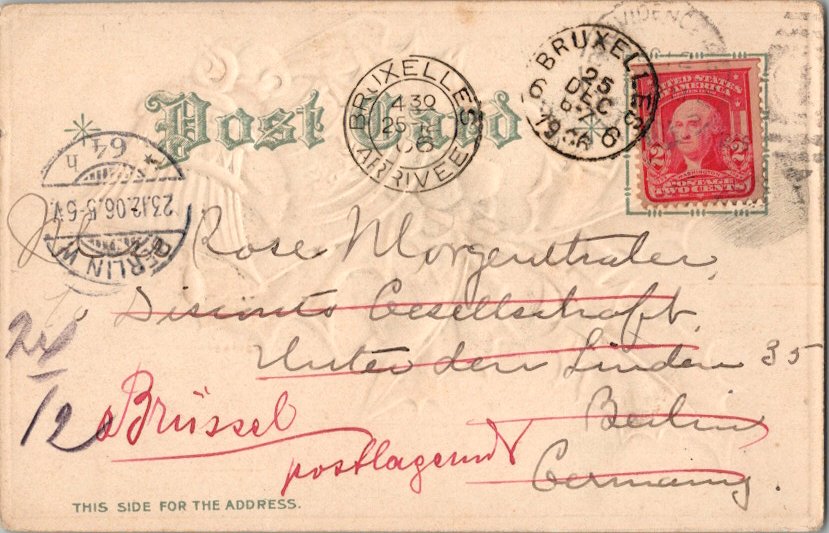 Post Card
BRUXELLES
4 30
25
06
ARRIVEE
BRUXELLES
25
DEC
1906
6
UNITED STATES
OF AMERICA
2 2
WASHINGTON
POSTAGE
TWO CENTS
BERLIN W.
23.12.06.5-6N.
64
h
Rose Morgenthaler,
Disconto Gesellschaft,
Unter den Linden 35
Berlin
Germany.
24/12
Brüssel
postlagernd
THIS SIDE FOR THE ADDRESS.